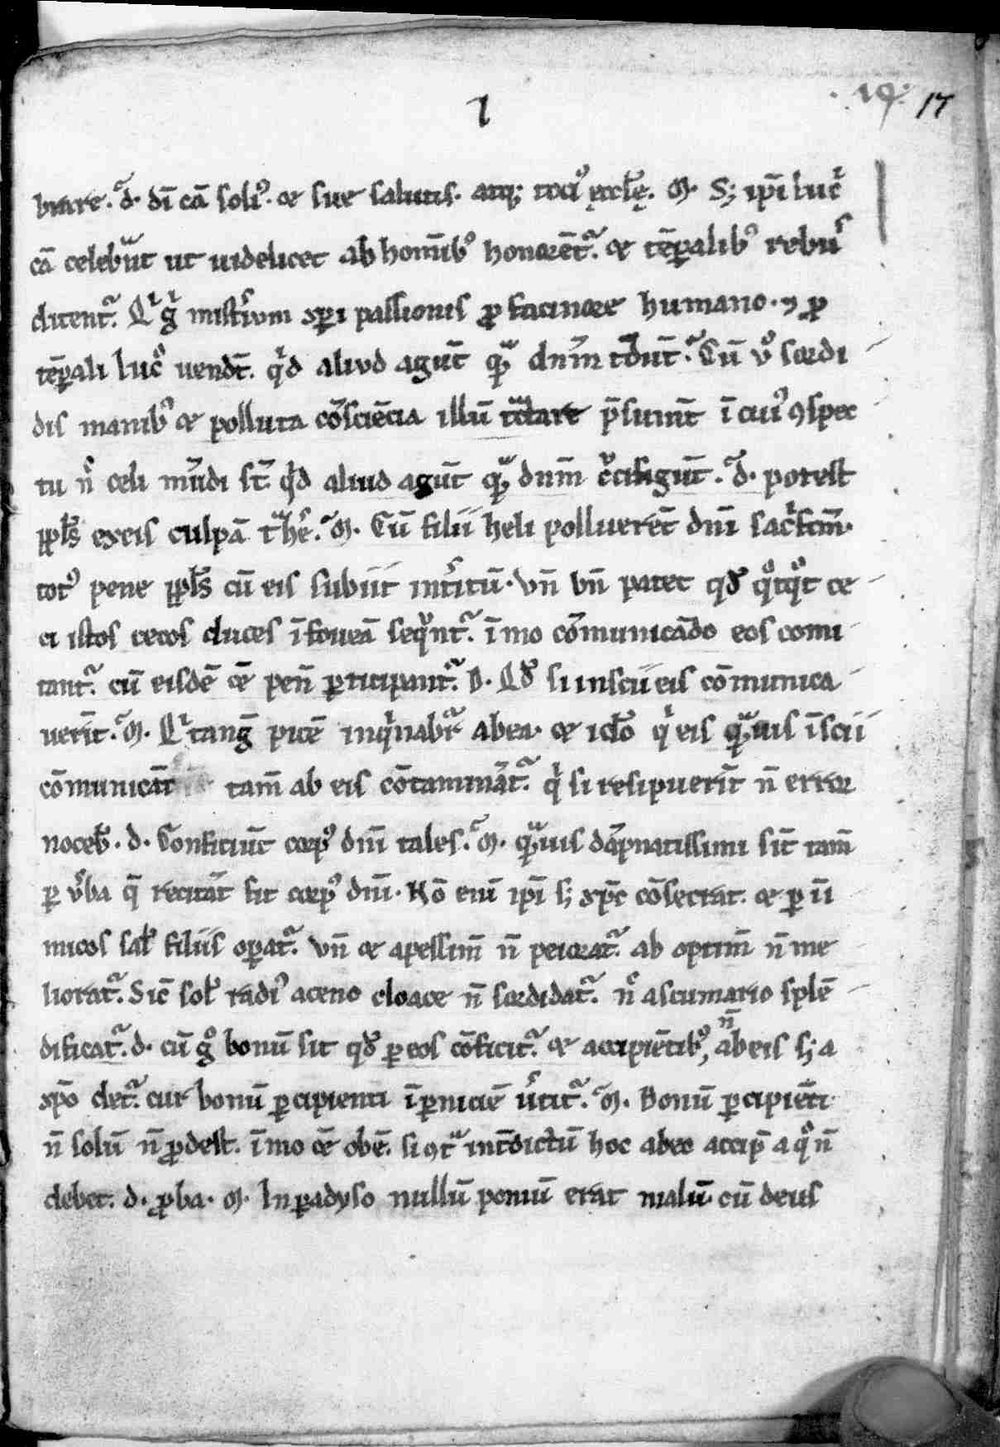 l
·19· 17
biture. d. dī cā soliꝰ. ⁊ sue salutis. atq; tociꝰ ęcclę. M. S; ip̄i luc̉
cā celeb̾nt ut uidelicet ab homīibꝰ honorēt᷑. ⁊ tēꝑalibꝰ rebus
ditent᷑. Qͥ g̊ mist̾ium xp̄i passionis ꝓ facinore humano. ⁊ ꝓ
tēꝑali lucͦ uendt̄. qͥd aliud agūt qͣ dn̄m tͣdūt. Cū ūͦ sordi
dis manibꝰ ⁊ polluta cōsciēcia illū tͣctare p̄sumūt ī cuiꝰ ꝯspec
tu n̄ celi mūdi st̄. qͥd aliud agūt qͣ dn̄m cͥcifigūt. d. potest
ppl̄s ex eis culpā tͣhe᷑. M. Cū filii heli polluerēt dn̄i sacͥficm̄.
totꝰ pene ppl̄s cū eis subiit int̾itū. vn̄ vn̄ patet qđ qͦtqͦt ce
ci istos cecos duces ī foueā seqͣnt᷑. īmo cōmunicādo eos comi
tant᷑. cū eisdē ⁊ē pen̄ ꝑticipant᷑. D. Qđ si inscii eis cōmunica
uerīt. M. Qͥ tanḡ picē inqͥnabr̄ ab ea. ⁊ ic̄o qͥ eis qͣuis īscii
cōmunicāt tam̄ ab eis cōtaminat᷑. qͥ si resipuerīt n̄ error
noceb̄. d. Conficiūt corpꝰ dn̄i tales. M. qͣuis dāpnatissimi sīt tam̄
ꝑ ūba q̄ recitāt fit corpꝰ dn̄i. Nō enī ip̄i s; xp̄c cōsecrat. ⁊ ꝑ ii
micos sal̄ filiis oꝑat᷑. vn̄ ⁊ a pessim̄ n̄ peiorat᷑. ab optim̄ n̄ me
liorat᷑. Sic̄ sol̄ radiꝰ a ceno cloace n̄ sordidat᷑. n̄ a scumario splē
dificat᷑. d. cū g̊ bonū sit qđ ꝑ eos cōficit᷑. ⁊ accipiētibꝰ n̄ ab eis s; a
xp̄o det᷑. cur bonū ꝑcipienti ī ꝑniciē ūtit᷑. M. Bonū ꝑcipiēti
n̄ solū n̄ ꝓdest. īmo ⁊ē obē. si ꝯtͣ int̄dictū hoc ab eo accip̄ a qͦ n̄
debet. d. ꝓba. M. In ꝑadyso nullū pomū erat malū. cū deus